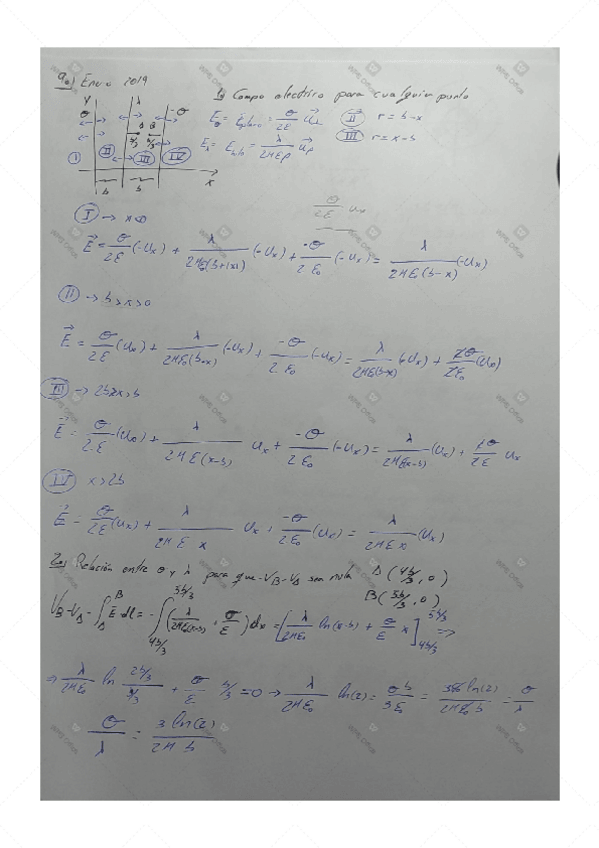 Enero 2019
1) Campo electrico para cualquier punto
Y σ λ -σ
I II III IV
A B
4b/3 5b/3
b b x
E_σ = E_plano = σ/2ε u⃗ II r = b-x
E_λ = E_hilo = λ/2περ u⃗_ρ III r = x-b
σ/2ε u_x
I → x<0
E⃗ = σ/2ε (-u_x) + λ/2πε₀(b+|x|) (-u_x) + -σ/2ε₀ (-u_x) = λ/2πε₀(b-x) (-u_x)
II → b>x>0
E⃗ = σ/2ε (u_x) + λ/2πε₀(b-x) (-u_x) + -σ/2ε₀ (-u_x) = λ/2πε(b-x) (-u_x) + 2σ/2ε₀ (u_x)
III → 2b>x>b
E⃗ = σ/2ε (u_x) + λ/2πε(x-b) u_x + -σ/2ε₀ (-u_x) = λ/2πε(x-b) (u_x) + 2σ/2ε u_x
IV x>2b
E⃗ = σ/2ε (u_x) + λ/2πε x u_x + -σ/2ε₀ (u_x) = λ/2πε x (u_x)
2) Relación entre σ y λ para que V_B - V_A sea nula A (4b/3, 0)
B (5b/3, 0)
V_B - V_A = -∫_A^B E⃗ dl = -∫_{4b/3}^{5b/3} (λ/2πε₀(x-b) + σ/ε) dx = [λ/2πε₀ ln(x-b) + σ/ε x]_{4b/3}^{5b/3} ⇒
⇒ λ/2πε₀ ln (2b/3)/(b/3) + σ/ε₀ b/3 = 0 → λ/2πε₀ ln(2) = σb/3ε₀ = 3ε₀ ln(2)/2πε₀ b = σ/λ
σ/λ = 3 ln(2)/2π b